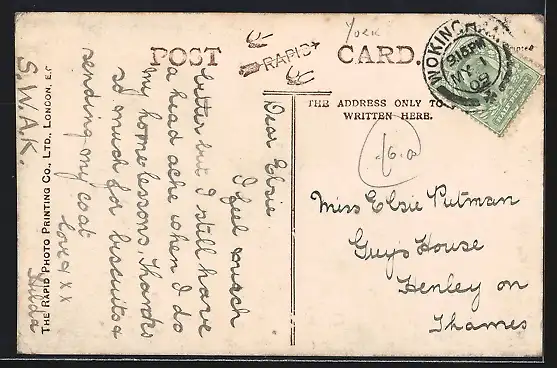 York
POST CARD.
RAPID
THE ADDRESS ONLY TO
WRITTEN HERE.
WOKINGHAM
9.15PM
MY 1
09
Miss Elsie Putman
Guy's House
Henley on
Thames
Dear Elsie
I feel much
better but I still have
a head ache when I do
my home lessons. Thanks
so much for biscuits &
sending my coat
love x x
Hilda
S.W.A.K.
THE RAPID PHOTO PRINTING CO., LTD. LONDON, E.C